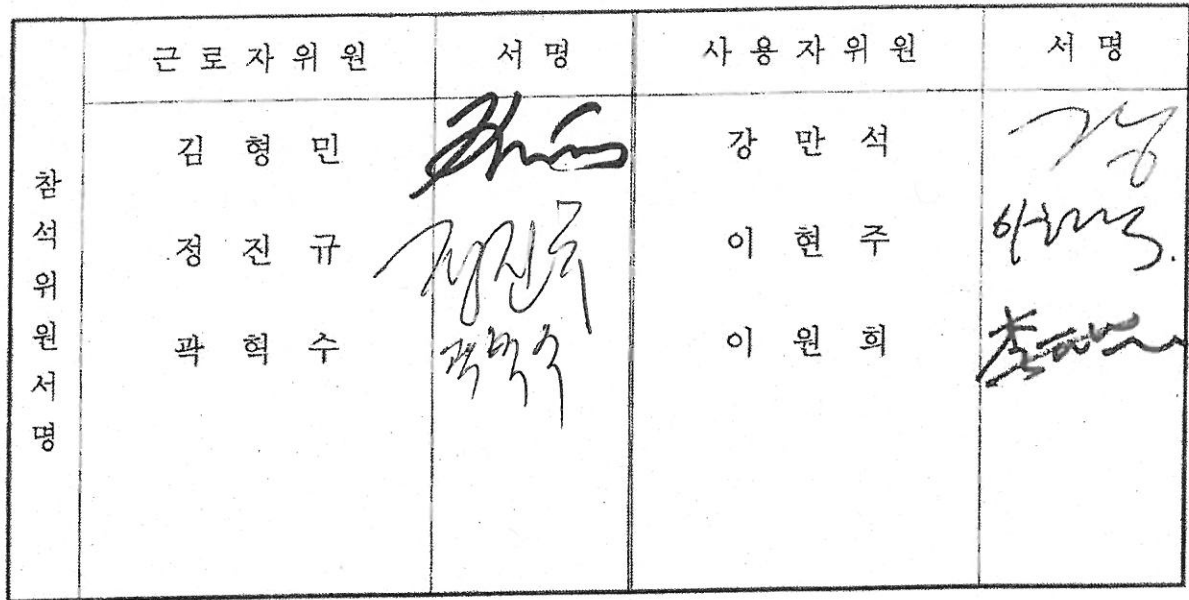 참석위원서명
근로자위원 서명 사용자위원 서명
김형민 강만석
정진규 정진규 이현주
곽혁수 곽혁수 이원희